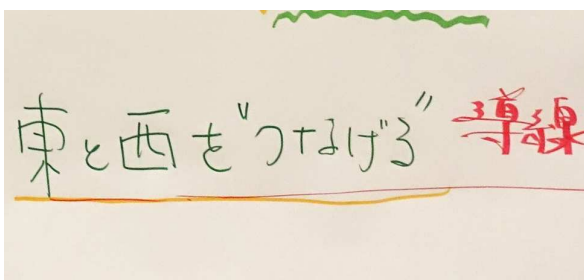 東と西を"つなげる" 導線